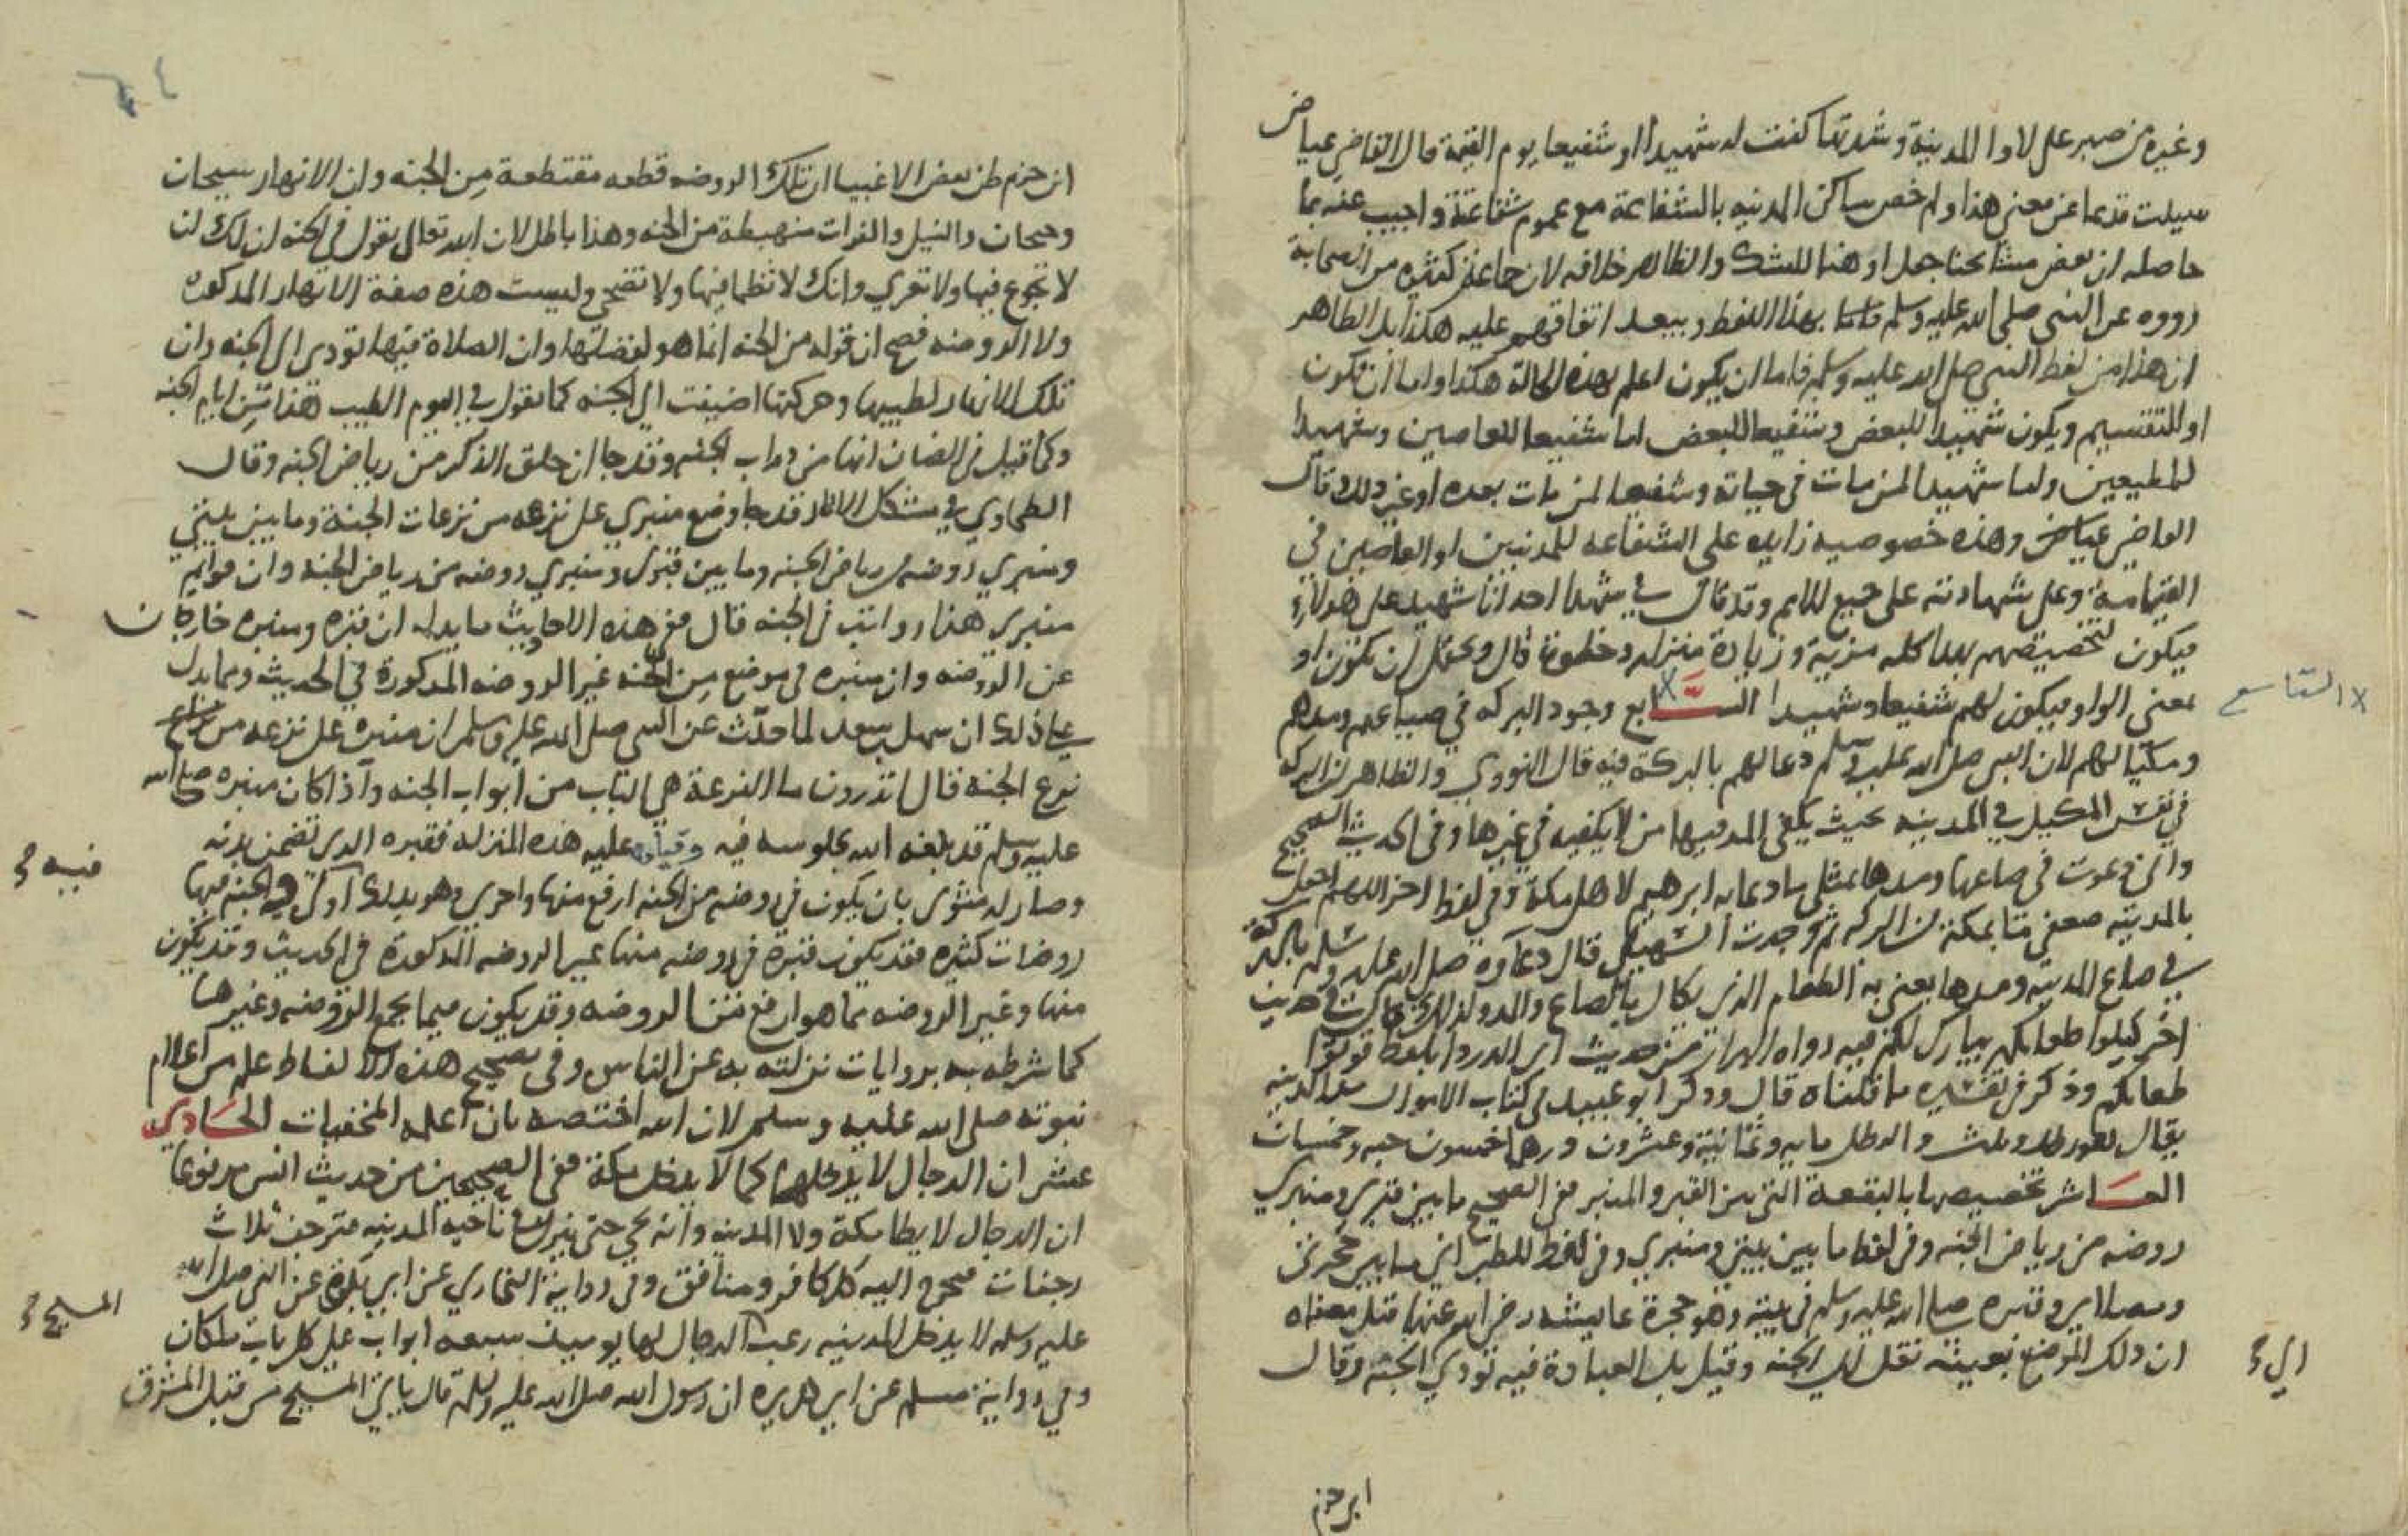 وغيره من صبر على لاوا المدينة وشدتها كنت له شهيدا او شفيعا يوم القيمة قال القاضي عياض
سيلت قدما عن معنى هذا ولم خص ساكن المدينه بالشفاعة مع عموم شفاعته واجيب عنه بما
حاصله ان بعض مشايخنا جعل او هنا للشك والظاهر خلافه لان جماعة كثيره من الصحابة
رووه عن النبي صلى الله عليه وسلم بهذا اللفظ ويبعد اتفاقهم عليه هكذا بل الظاهر
ان هذا من لفظ النبي صلى الله عليه وسلم فاما ان يكون اعلم بهذه الحالة هكذا واما ان تكون
او للتقسيم ويكون شهيدا للبعض وشفيعا للبعض اما شفيعا للعاصين وشهيدا
للمطيعين واما شهيدا لمن مات في حياته وشفيعا لمن مات بعده او غير ذلك وقال
القاضي عياض وهذه خصوصيه زايده على الشفاعه للمدنبين او العاصين في
القيامة وعلى شهادته على جميع الامم وقد قال في شهدا احد انا شهيد على هولاء
فيكون لتخصيصهم بهذا كله مزية وزيادة منزله وحظوة قال ويحتمل ان تكون او
بمعنى الواو فيكون لهم شفيعا وشهيدا السابع وجود البركه في صاعهم ومدهم
x التاسع
ومكيالهم لان النبي صلى الله عليه وسلم دعا لهم بالبركة فيه قال النووي والظاهر ان البركه
في نفس المكيل في المدينه بحيث يكفي المد فيها من لا يكفيه في غيرها وفي الحديث الصحيح
واني دعوت في صاعها ومدها بمثلي ما دعا به ابرهيم لاهل مكة وفي لفظ اخر اللهم اجعل
بالمدينه ضعفي ما بمكة من البركه ثم وجدت السهيلي قال دعاوه صلى الله عليه وسلم بالبركة
في صاع المدينه ومدها يعني به الطعام الذي يكال بالصاع والمد ولذلك قال في حديث
اخر كيلوا طعامكم يبارك لكم فيه رواه البزار من حديث ابي الدردا بلفظ قوتوا
طعامكم وذكر في تفسيره ما قلناه قال وذكر ابو عبيد في كتاب الاموال مد المدينه
يقال هو رطل وثلث والرطل مايه وثمانية وعشرون درهما خمسون حبه وخمسان
العاشر تخصيصها بالبقعة التي بين القبر والمنبر ففي الصحيح ما بين قبري ومنبري
روضه من رياض الجنه وفي لفظ ما بين بيتي ومنبري وفي لفظ للطبراني ما بين حجرتي
ومصلاي وقبره صلى الله عليه وسلم في بيته وهو حجرة عايشه رضي الله عنها قيل معناه
ان ذلك الموضع بعينه نقل الى الجنه وقيل بل العبادة فيه تودي الجنه وقال
الي
ابن حزم
ابن حزم ظن بعض الاغبيا ان تلك الروضه قطعه مقتطعة من الجنه وان الانهار سيحان
وجيحان والنيل والفرات منهبطة من الجنه وهذا باطل لان الله تعالى يقول في الجنه ان لك ان
لا تجوع فيها ولا تعري وانك لا تظما فيها ولا تضحى وليست هذه صفة الانهار المذكوره
ولا الروضه فصح ان قوله من الجنه انما هو لفضلها وان الصلاة فيها تودي الى الجنه وان
تلك الانهار لطيبها وبركتها اضيفت الى الجنه كما تقول في اليوم الطيب هذا من ايام الجنه
وكما قيل في الضان انها من دواب الجنه وقد جا ان حلق الذكر من رياض الجنه وقال
الطحاوي في مشكل الاثار قد جا وضع منبري على ترعه من ترعات الجنة وما بين بيتي
ومنبري روضه من رياض الجنه وما بين قبري ومنبري روضه من رياض الجنه وان قوايم
منبري هذا رواتب في الجنه قال ففي هذه الاحاديث ما يدل ان قبره ومنبره خارجان
عن الروضه وان منبره في موضع من الجنه غير الروضه المذكورة في الحديث ومما يدل
على ذلك ان سهل بن سعد لما حدث عن النبي صلى الله عليه وسلم ان منبره على ترعه من
ترع الجنه قال اتدرون ما الترعة هي الباب من ابواب الجنه واذا كان منبره صلى الله
عليه وسلم قد بلغه الله بجلوسه فيه وقيامه عليه هذه المنزله فقبره الذي تضمن بدنه
فيه
وصار له مثوى بان يكون في روضه من الجنه ارفع منها واحرى وهو بذلك اولى وفي الجنه منها
روضات كثيره فقد يكون قبره في روضه منها غير الروضه المذكورة في الحديث وقد يكون
منها وغير الروضه مما هو ارفع من الروضه وقد يكون فيما يجمع الروضه وغيرها
كما شرطه به بروايات نزلته به عن الناس وفي تصحيح هذه الالفاظ علم من اعلام
نبوته صلى الله عليه وسلم لان الله اختصه بان اعلمه المخفيات الحادي
عشر ان الدجال لا يدخلها كما لا يدخل مكة ففي الصحيحين من حديث انس مرفوعا
ان الدجال لا يطا مكة ولا المدينه وانه يجي حتى ينزل في ناحيه المدينه فترجف ثلاث
رجفات فيخرج اليه كل كافر ومنافق وفي رواية البخاري عن ابي بكرة عن النبي صلى الله
عليه وسلم لا يدخل المدينه رعب الدجال لها يوميذ سبعه ابواب على كل باب ملكان
المسيح
وفي رواية مسلم عن ابي هريره ان رسول الله صلى الله عليه وسلم قال ياتي المسيح من قبل المشرق